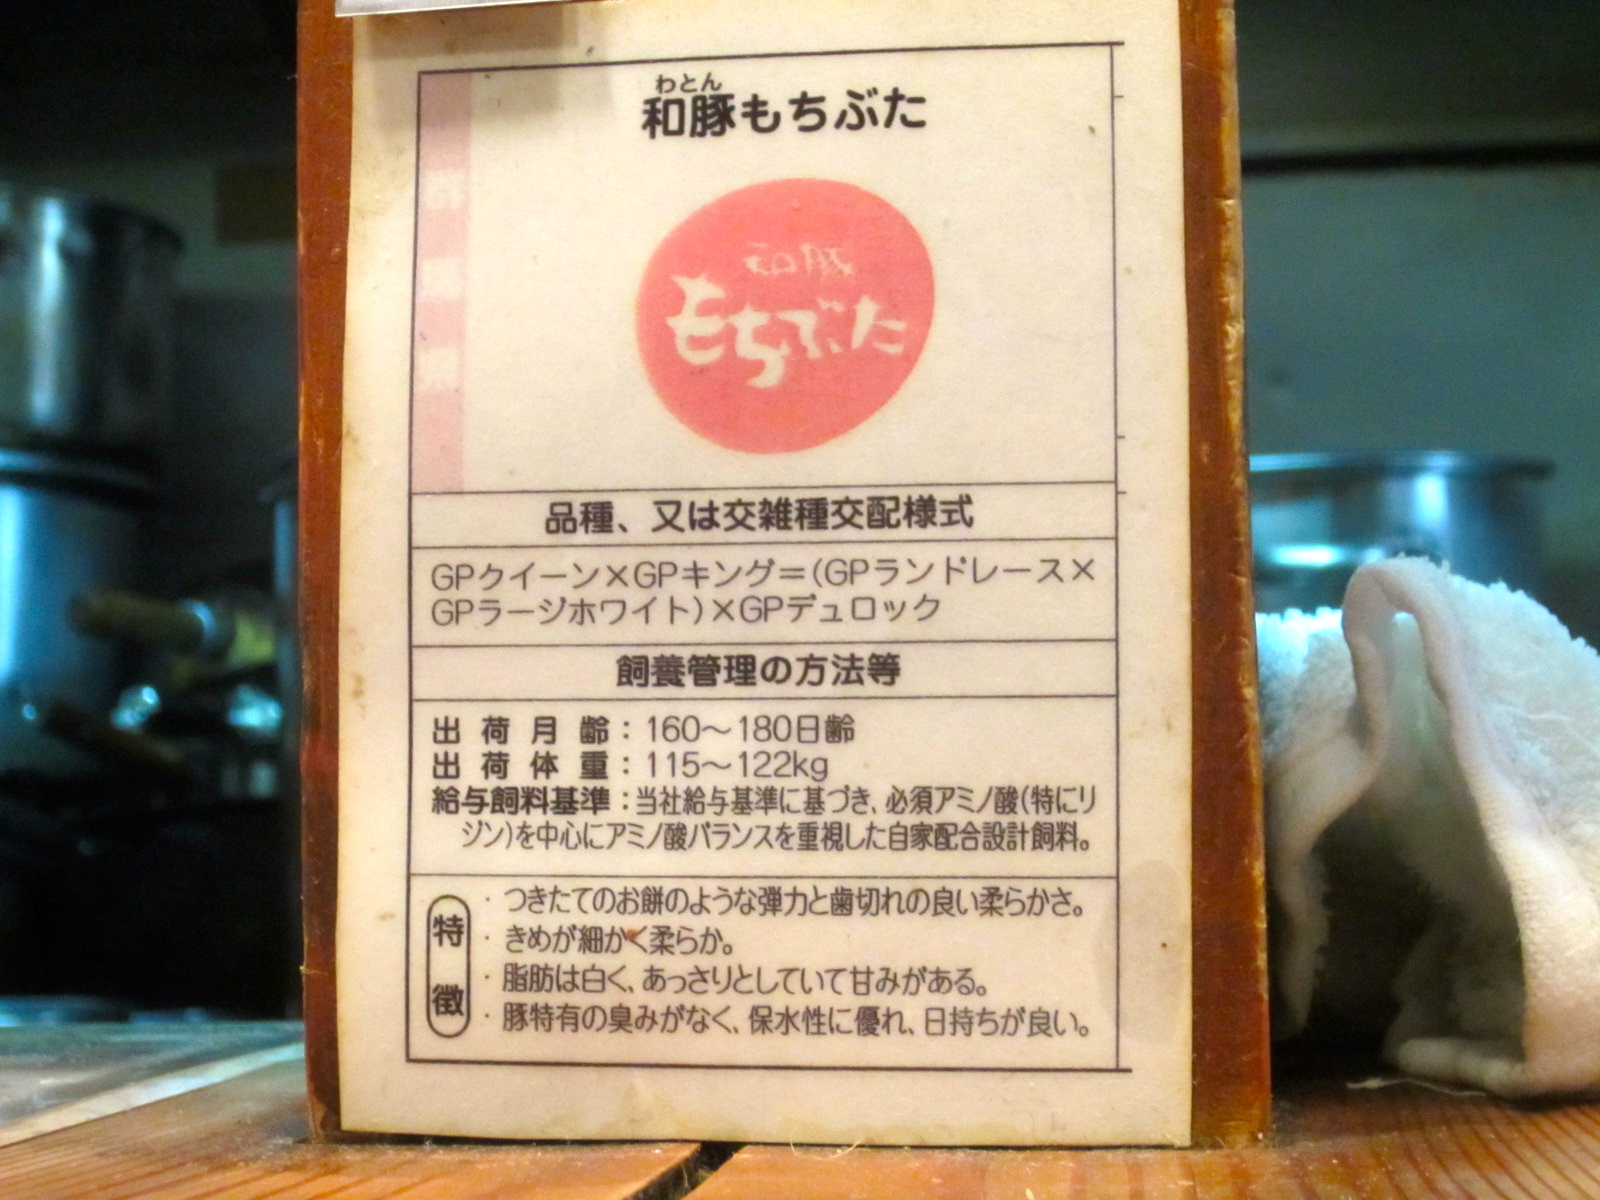 わとん
和豚もちぶた
和豚
もちぶた
品種、又は交雑種交配様式
GPクイーン×GPキング＝(GPランドレース×
GPラージホワイト)×GPデュロック
飼養管理の方法等
出荷月齢：160～180日齢
出荷体重：115～122kg
給与飼料基準：当社給与基準に基づき、必須アミノ酸(特にリ
ジン)を中心にアミノ酸バランスを重視した自家配合設計飼料。
特徴
・つきたてのお餅のような弾力と歯切れの良い柔らかさ。
・きめが細かく柔らか。
・脂肪は白く、あっさりとしていて甘みがある。
・豚特有の臭みがなく、保水性に優れ、日持ちが良い。